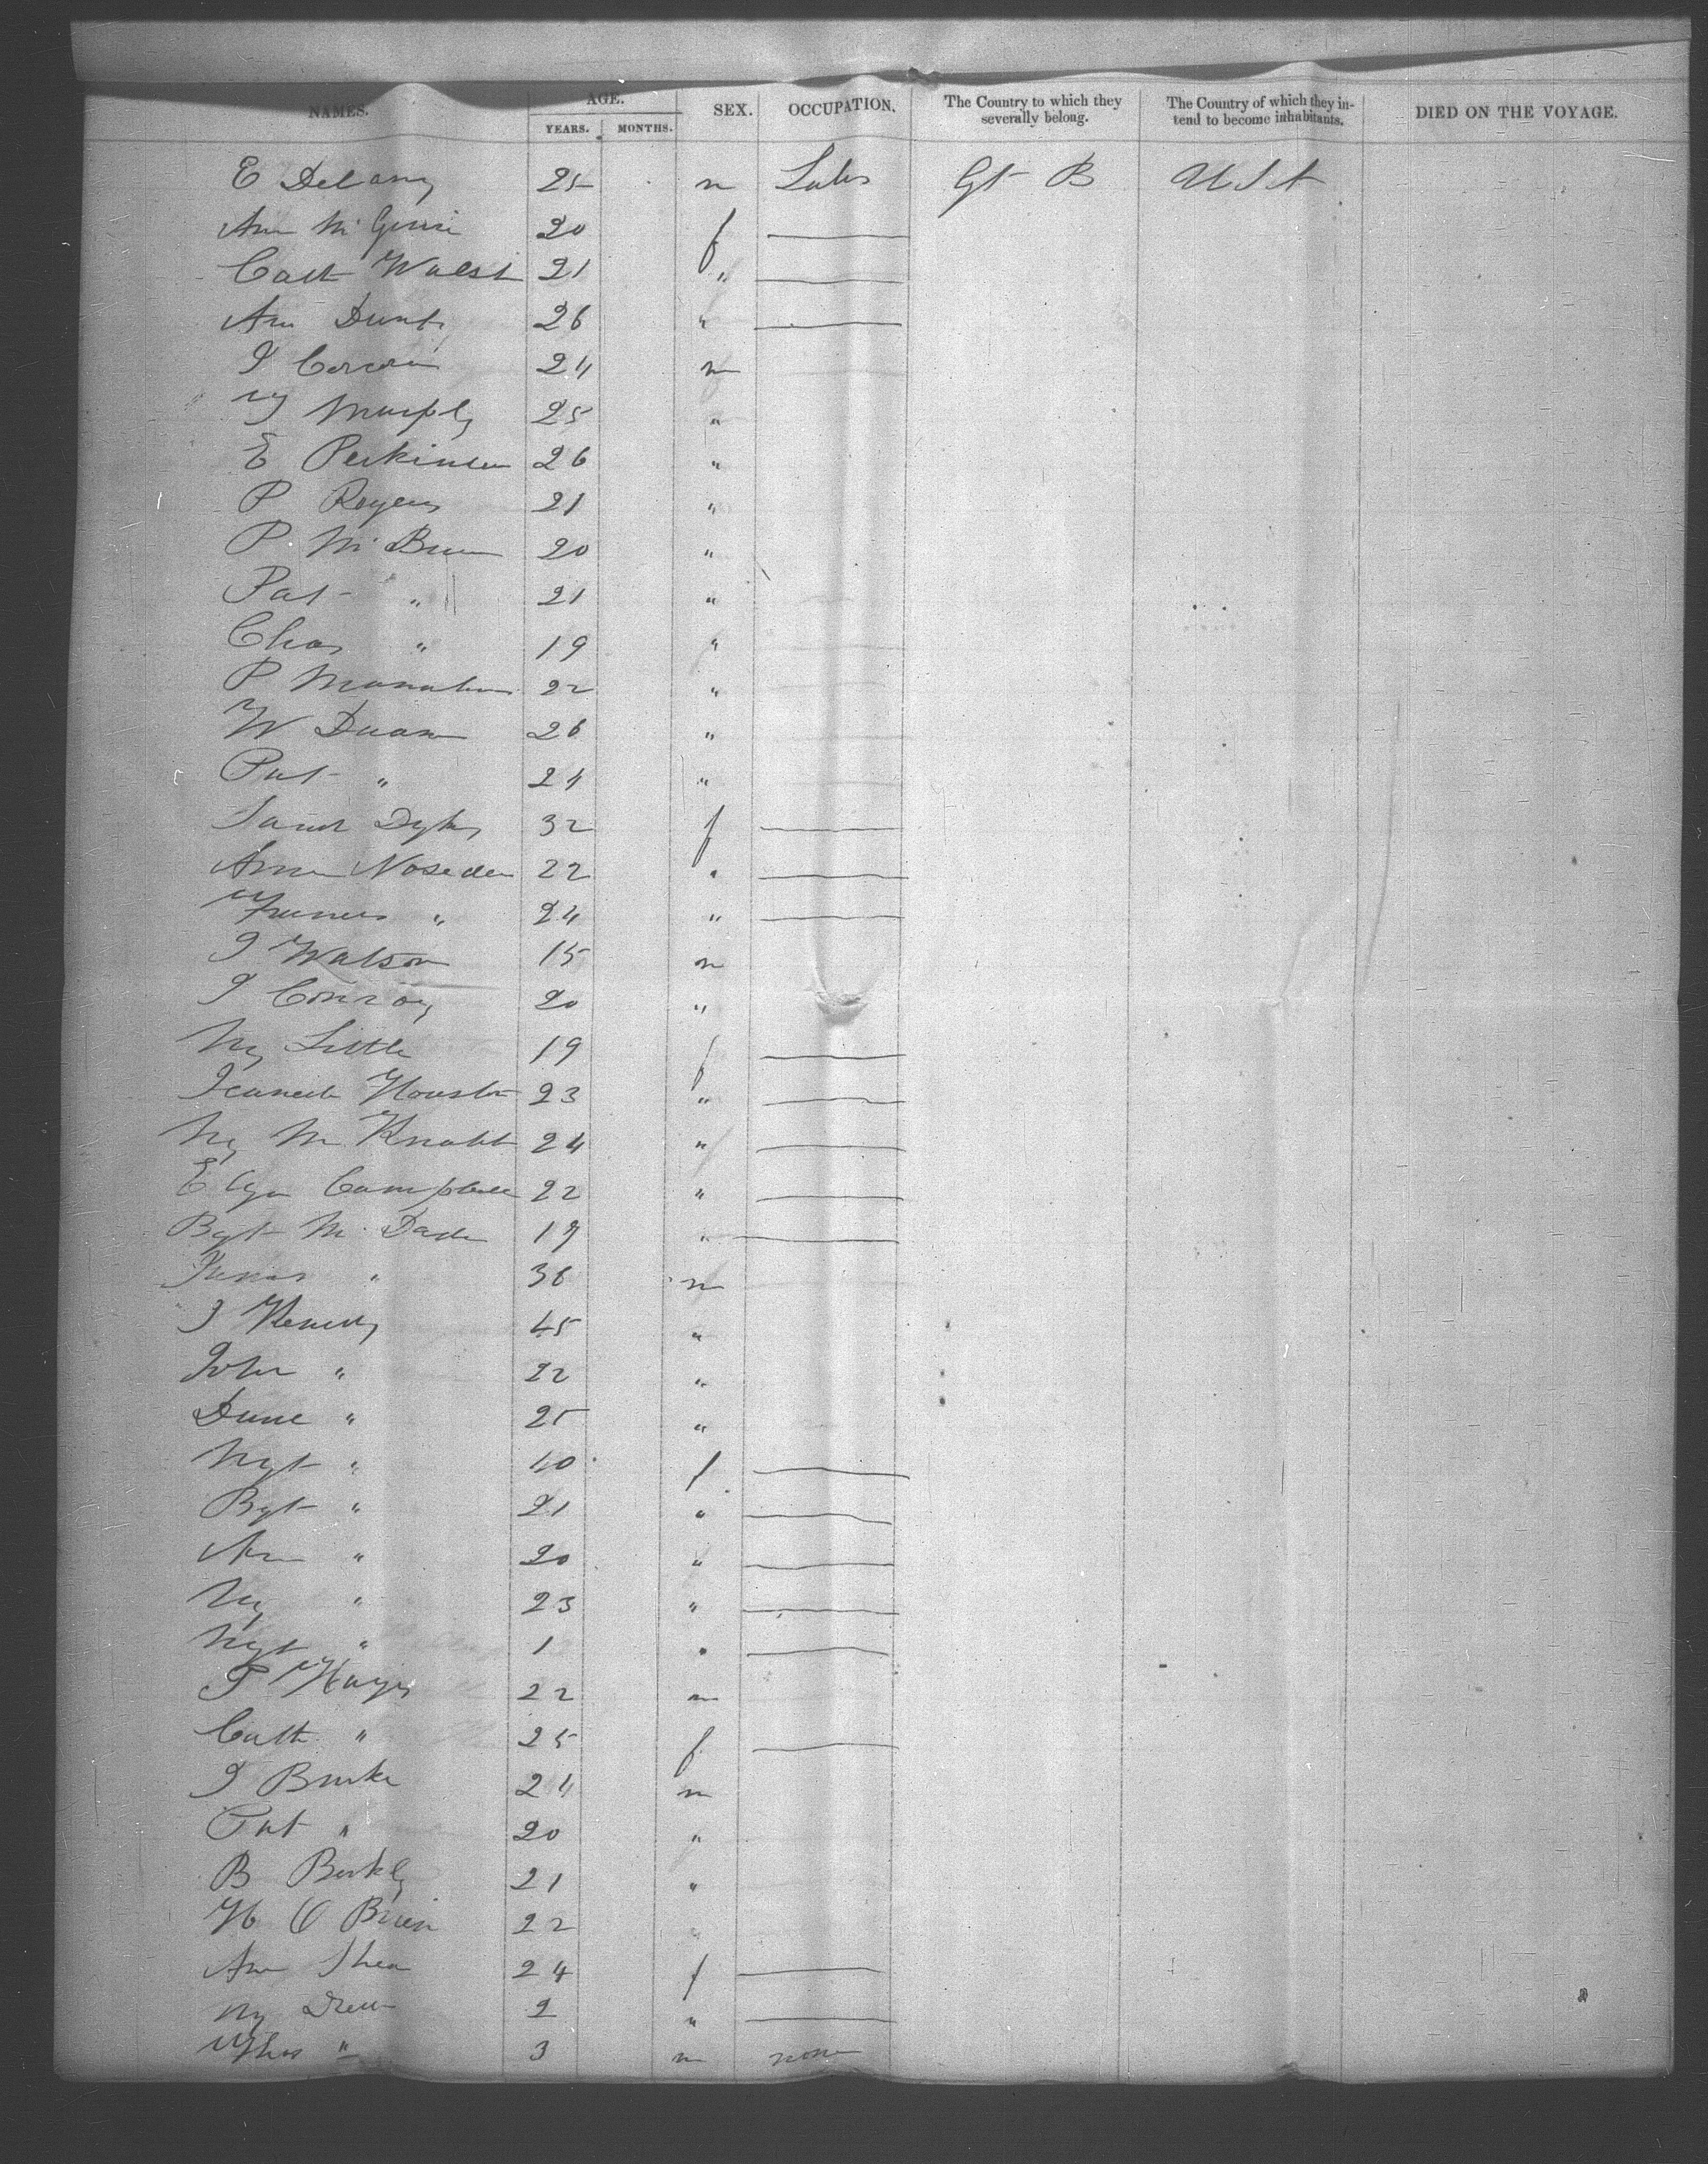 NAMES. AGE. SEX. OCCUPATION. The Country to which they severally belong. The Country of which they intend to become inhabitants. DIED ON THE VOYAGE.
YEARS. MONTHS.
E Delany 25 m Labr Gt B U S A
Ann 20 f
Cath Walsh 21 "
Ann 26 "
24 m
Murphy 25 "
E Perkinson 26 "
P Rogers 21 "
P 20 "
Pat " 21 "
Chas " 19 "
P Monahan 22 "
W Duan 26 "
Pat " 24 "
32 f
Ann Noseden 22 "
" 24 "
J Watson 15 m
J Conroy 20 "
My Little 19 f
Houston 23 "
My 24 "
Campbell 22 "
Bgt Mc Dade 19 "
" 36 m
J Kenedy 45 "
John " 22 "
" 25 "
Mgt " 40 f
Bgt " 21 "
Ann " 20 "
My " 23 "
Mgt " 1 "
Hayes 22 m
Cath " 25 f
J Burke 24 m
Pat " 20 "
B 21 "
O Brien 22 "
Ann Shea 24 f
My Drew 2 "
Thos " 3 m none